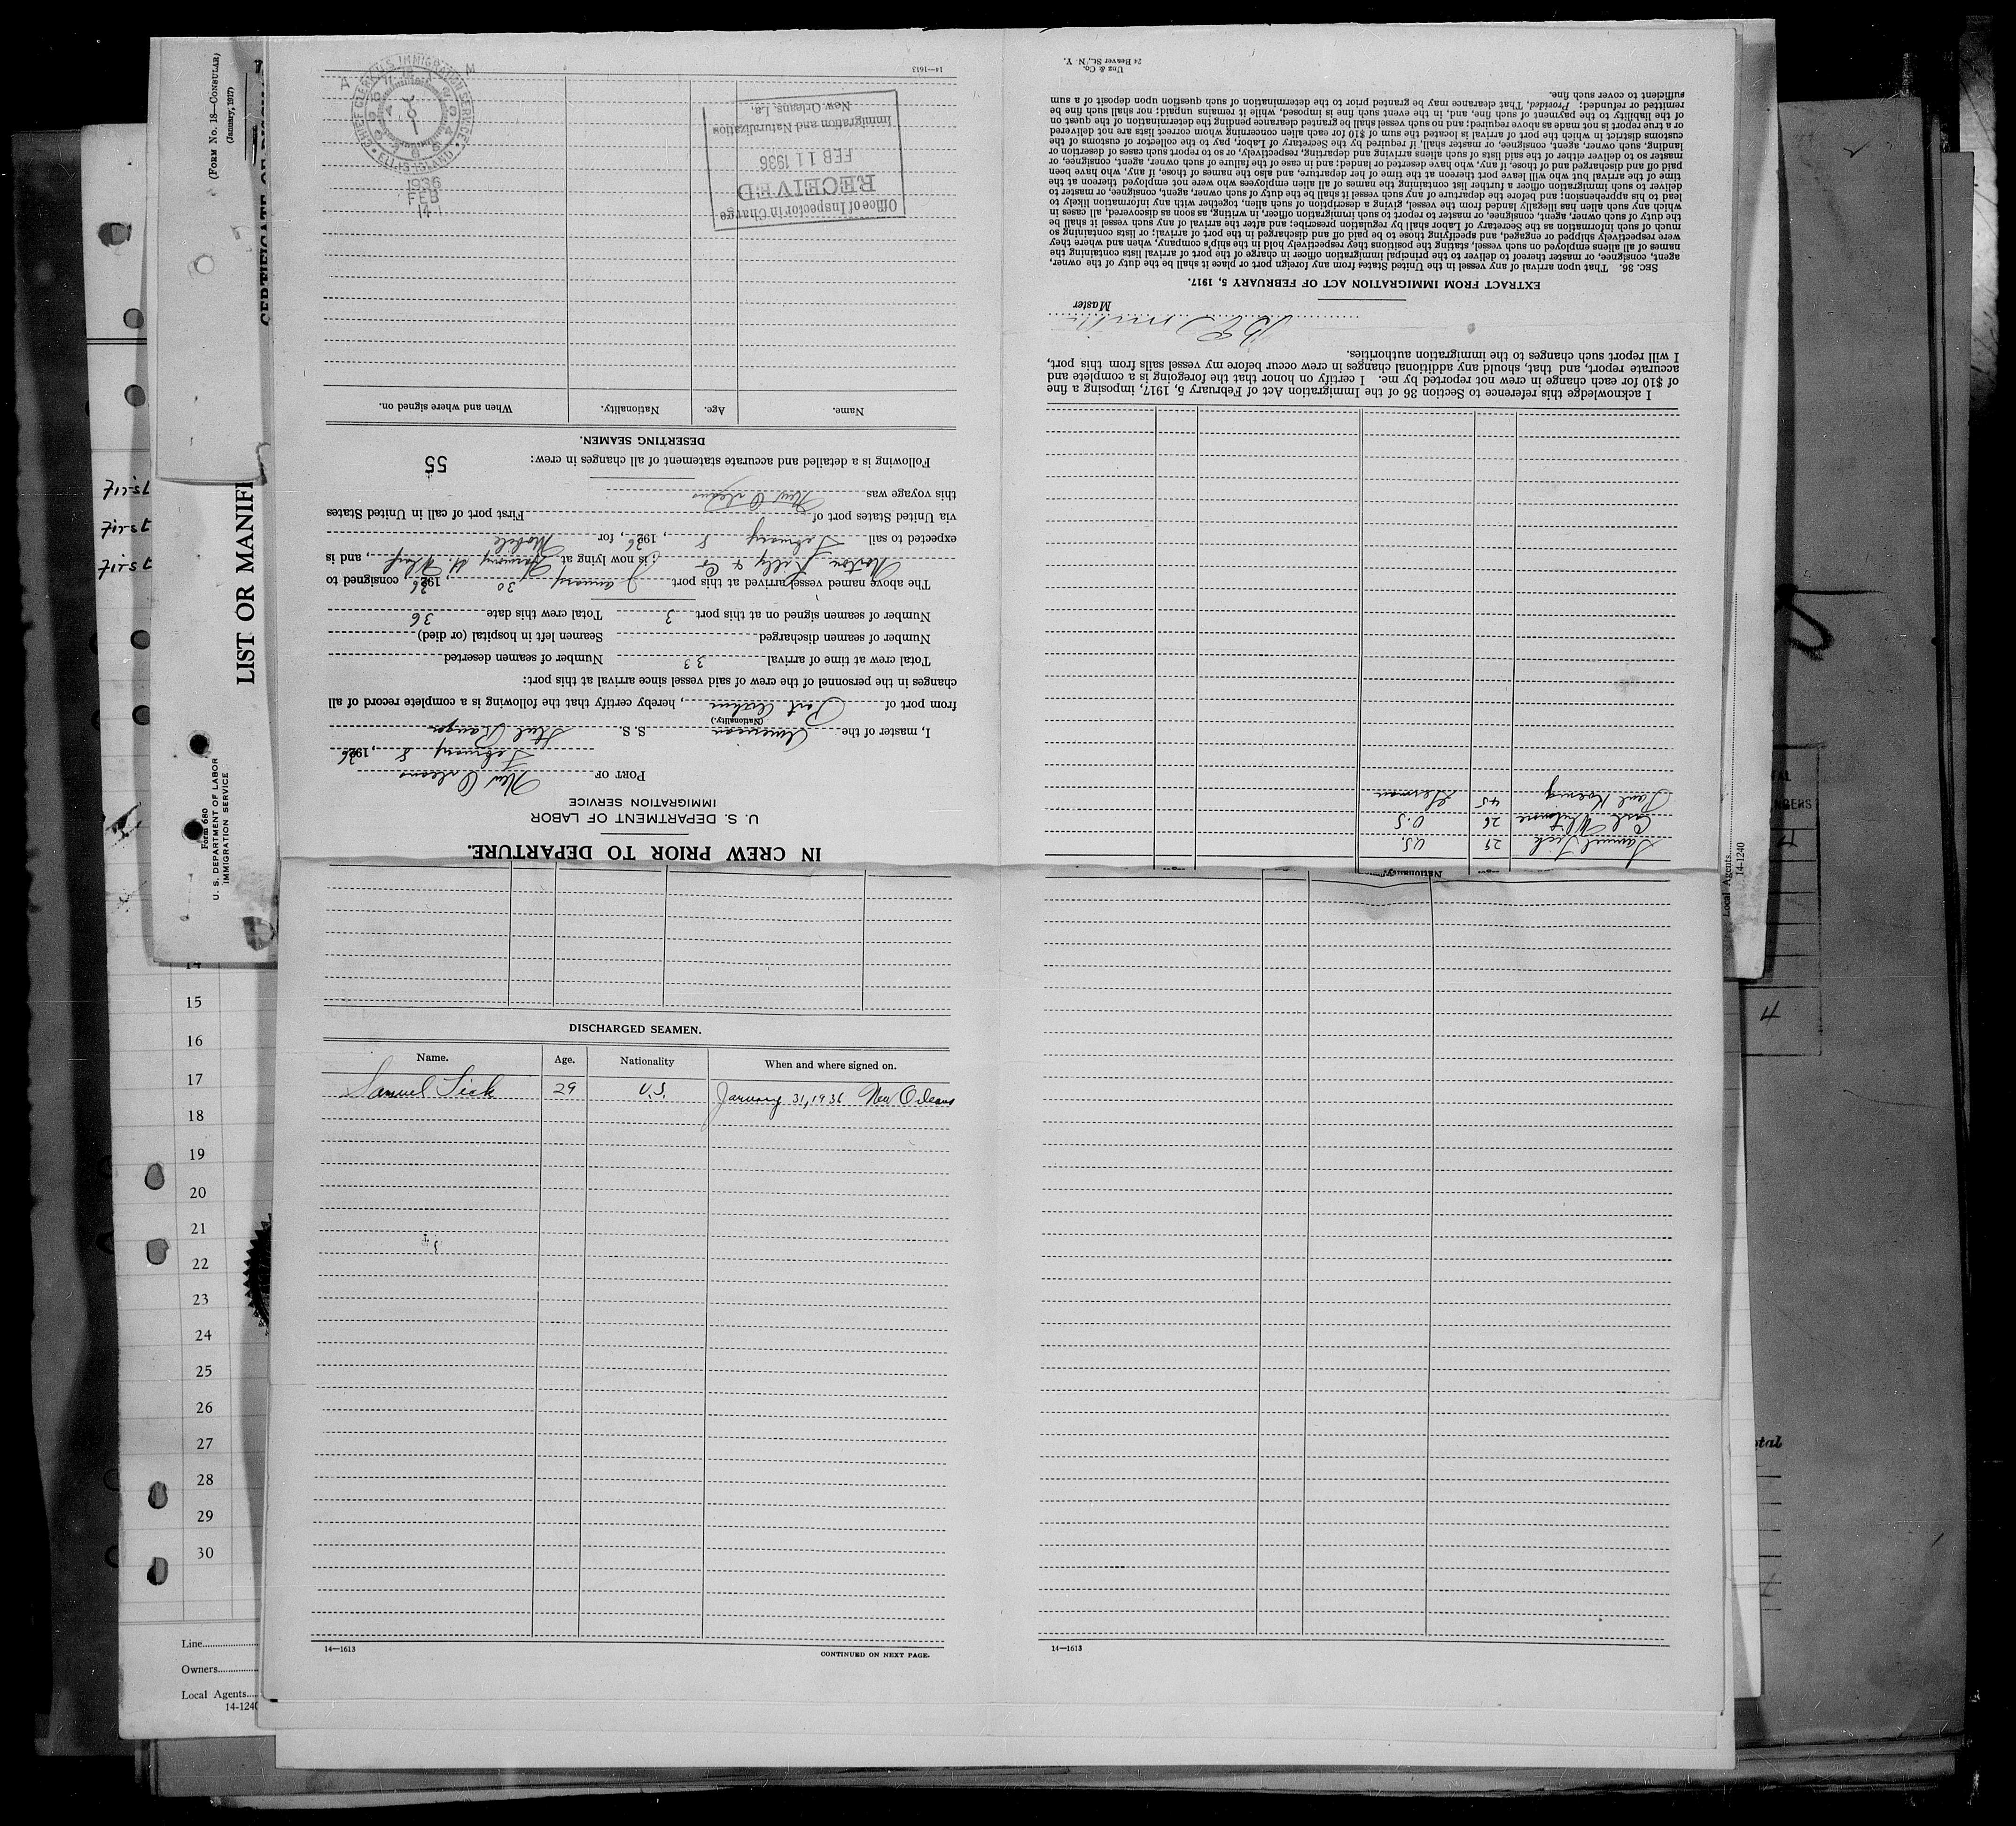 (Form No. 18—Consular)
(January, 1917)
LIST OR MANIF
Form 680
U. S. DEPARTMENT OF LABOR
IMMIGRATION SERVICE
First
First
First
IN CREW PRIOR TO DEPARTURE.
U. S. DEPARTMENT OF LABOR
IMMIGRATION SERVICE
PORT OF New Orleans
February 8, 1936
I, master of the American S. S. Steel Ranger
(Nationality.)
from port of Port Arthur, hereby certify that the following is a complete record of all
changes in the personnel of the crew of said vessel since arrival at this port:
Total crew at time of arrival 33 Number of seamen deserted
Number of seamen discharged Seamen left in hospital (or died)
Number of seamen signed on at this port 3 Total crew this date 36
The above named vessel arrived at this port January 30 1936, consigned to
Norton Lilly & Co; is now lying at Harmony St. Wharf, and is
expected to sail February 8, 1936, for Mobile
via United States port of First port of call in United States
this voyage was New Orleans
Following is a detailed and accurate statement of all changes in crew:
55
DESERTING SEAMEN.
Name. Age. Nationality. When and where signed on.
Office of Inspector in Charge
RECEIVED
FEB 11 1936
Immigration and Naturalization
New Orleans, La.
CHIEF CLERK U.S. IMMIGRATION SERVICE
ELLIS ISLAND
1936
FEB
14
14—1613
DISCHARGED SEAMEN.
Name. Age. Nationality When and where signed on.
Samuel Sick 29 U.S. January 31, 1936 New Orleans
14—1613
CONTINUED ON NEXT PAGE.
Nationality.
Samuel Sick 29 U.S.
Carl Whitmore 26 U.S.
Paul Koenig 45 German
I acknowledge this reference to Section 36 of the Immigration Act of February 5, 1917, imposing a fine
of $10 for each change in crew not reported by me. I certify on honor that the foregoing is a complete and
accurate report, and that, should any additional changes in crew occur before my vessel sails from this port,
I will report such changes to the immigration authorities.
Master
EXTRACT FROM IMMIGRATION ACT OF FEBRUARY 5, 1917.
SEC. 36. That upon arrival of any vessel in the United States from any foreign port or place it shall be the duty of the owner,
agent, consignee, or master thereof to deliver to the principal immigration officer in charge of the port of arrival lists containing the
names of all aliens employed on such vessel, stating the positions they respectively hold in the ship's company, when and where they
were respectively shipped or engaged, and specifying those to be paid off and discharged in the port of arrival; or lists containing so
much of such information as the Secretary of Labor shall by regulation prescribe; and after the arrival of any such vessel it shall be
the duty of such owner, agent, consignee, or master to report to such immigration officer, in writing, as soon as discovered, all cases in
which any such alien has illegally landed from the vessel, giving a description of such alien, together with any information likely to
lead to his apprehension; and before the departure of any such vessel it shall be the duty of such owner, agent, consignee, or master to
deliver to such immigration officer a further list containing the names of all alien employees who were not employed thereon at the
time of the arrival but who will leave port thereon at the time of her departure, and also the names of those, if any, who have been
paid off and discharged and of those, if any, who have deserted or landed; and in case of the failure of such owner, agent, consignee, or
master so to deliver either of the said lists of such aliens arriving and departing, respectively, or so to report such cases of desertion or
landing, such owner, agent, consignee, or master shall, if required by the Secretary of Labor, pay to the collector of customs of the
customs district in which the port of arrival is located the sum of $10 for each alien concerning whom correct lists are not delivered
or a true report is not made as above required; and no such vessel shall be granted clearance pending the determination of the question
of the liability to the payment of such fine, and, in the event such fine is imposed, while it remains unpaid; nor shall such fine be
remitted or refunded; Provided, That clearance may be granted prior to the determination of such question upon deposit of a sum
sufficient to cover such fine.
Unz & Co.
24 Beaver St., N. Y.
14—1613
14
15
16
17
18
19
20
21
22
23
24
25
26
27
28
29
30
Line
Owners
Local Agents
14-1240
Local Agents
14-1240
4